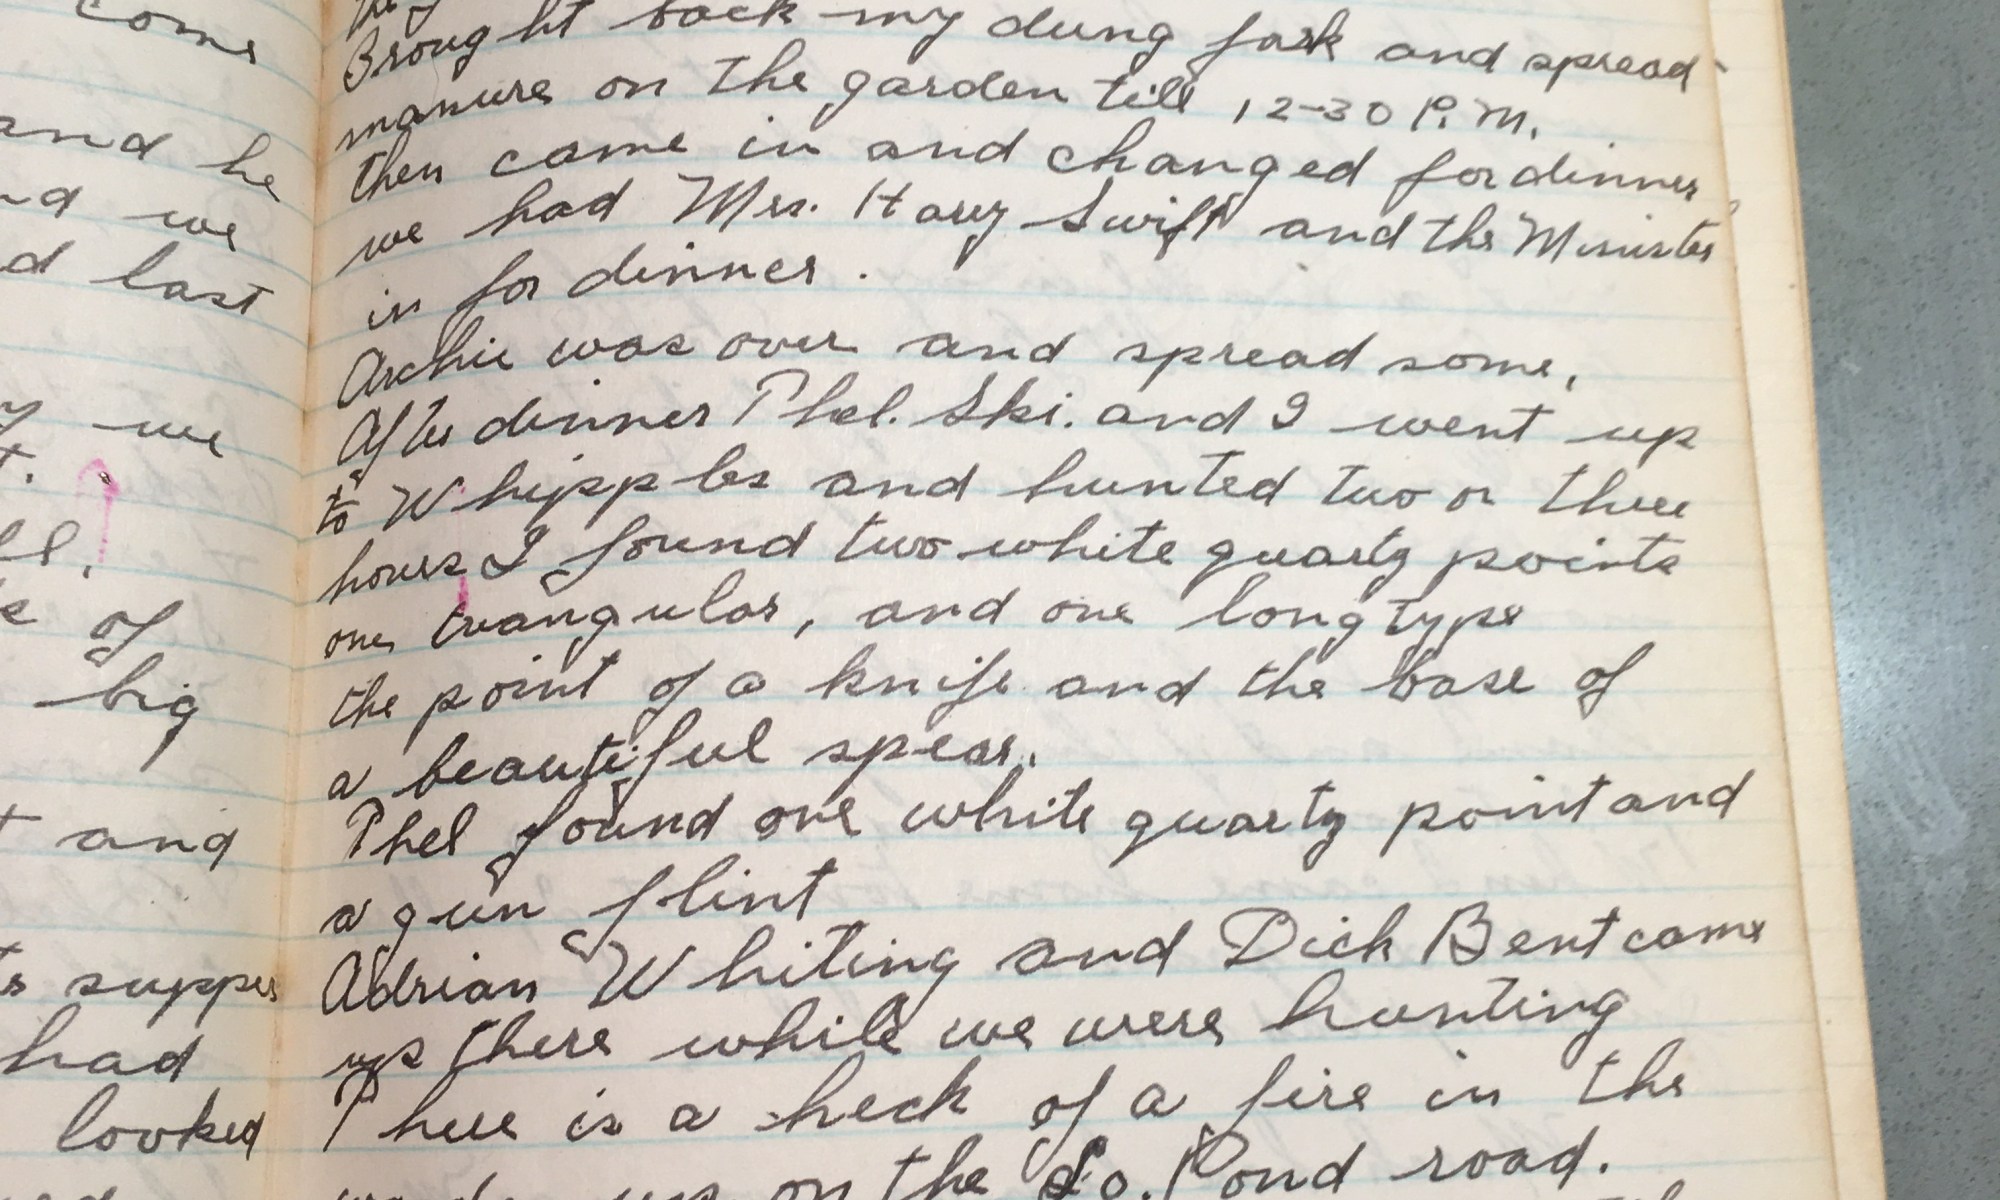 come
and he
and we
d last
y we
t.
of
big
t and
supper
had
looked
Brought back my dung fork and spread
manure on the garden till 12-30 P.M.
then came in and changed for dinner
we had Mrs. Harry Swift and the Minister
in for dinner.
Archie was over and spread some,
After dinner Phel. Ski. and I went up
to Whipples and hunted two or three
hours I found two white quartz points
one triangular, and one long type
the point of a knife and the base of
a beautiful spear.
Phel found one white quartz point and
a gun flint
Adrian Whiting and Dick Bent came
up there while we were hunting
There is a heck of a fire in the
up on the So. Pond road.